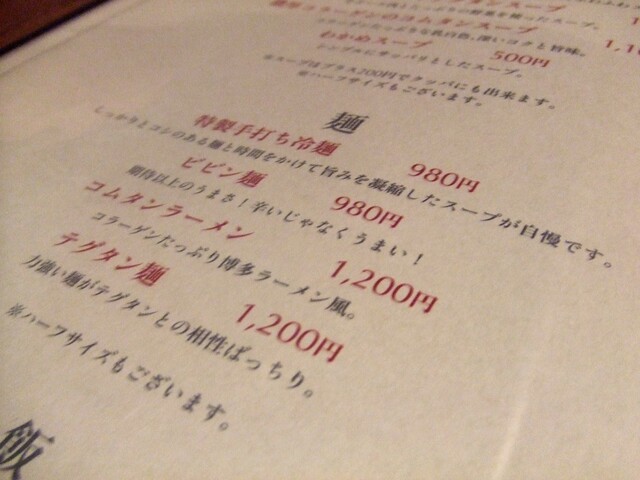 タンスープ
濃厚コラーゲンのコムタンスープ 1,1
コラーゲンたっぷりな乳白色、深いコクと旨味。
わかめスープ 500円
シンプルにサッパリとしたスープ。
※スープはプラス200円でクッパにも出来ます。
※ハーフサイズもございます。
麺
特製手打ち冷麺 980円
しっかりとコシのある麺と時間をかけて旨みを凝縮したスープが自慢です。
ビビン麺 980円
期待以上のうまさ！辛いじゃなくうまい！
コムタンラーメン 1,200円
コラーゲンたっぷり博多ラーメン風。
テグタン麺 1,200円
力強い麺がテグタンとの相性ばっちり。
※ハーフサイズもございます。
飯